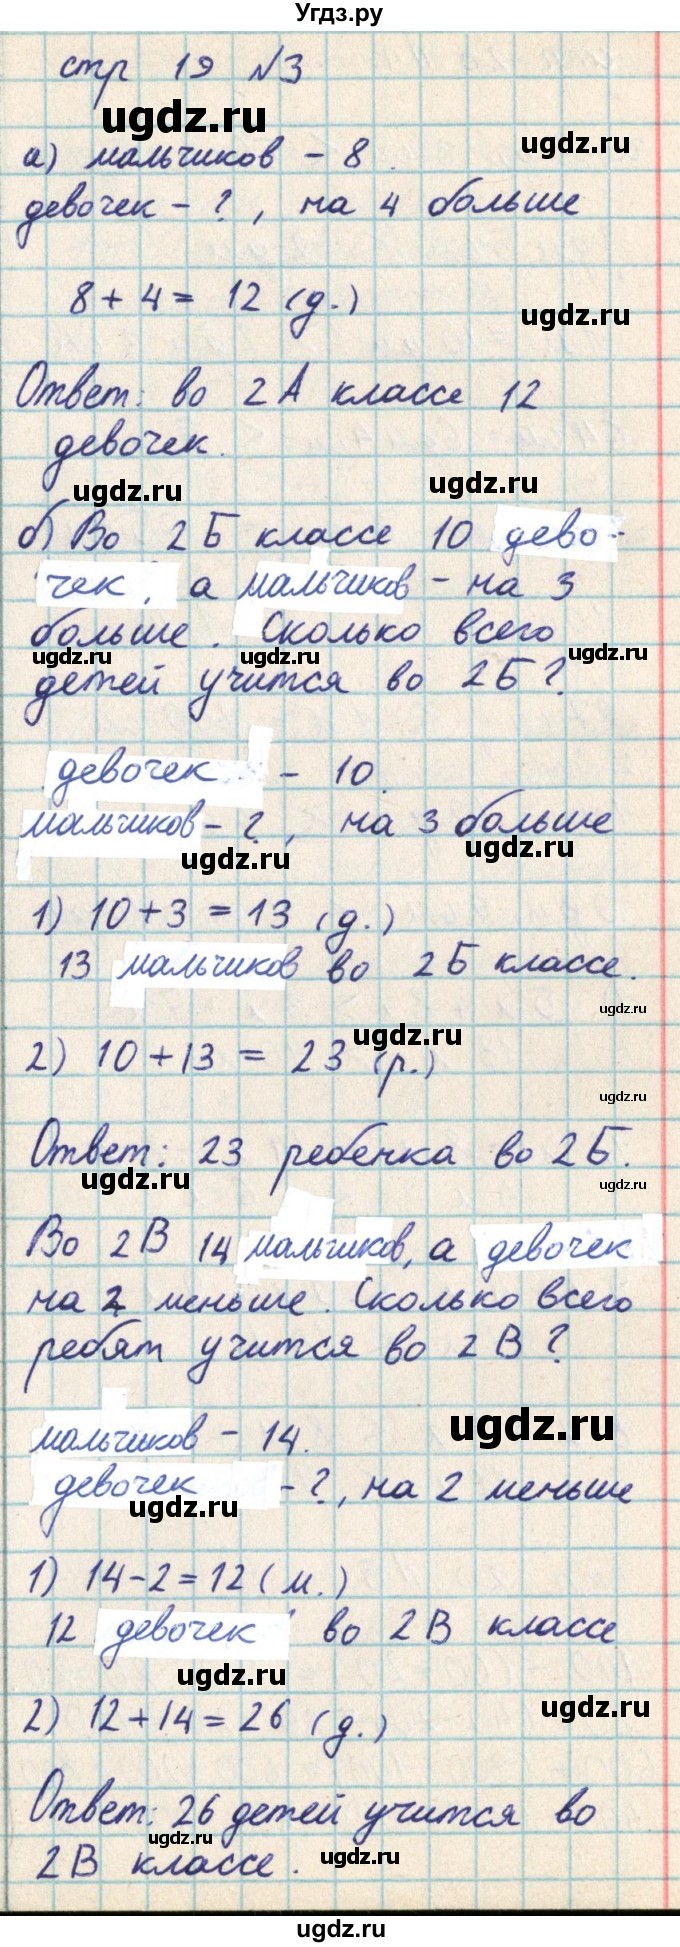 Угдз.ру
стр 19 №3
ugdz.ru
ugdz.ru
а) мальчиков - 8.
девочек - ?, на 4 больше
8 + 4 = 12 (д.)
ugdz.ru
Ответ: во 2А классе 12
девочек.
ugdz.ru
ugdz.ru
б) Во 2Б классе 10 дево-
чек, а мальчиков - на 3
больше. Сколько всего
ugdz.ru
ugdz.ru
ugdz.ru
детей учится во 2Б?
девочек - 10.
мальчиков - ?, на 3 больше
ugdz.ru
ugdz.ru
1) 10 + 3 = 13 (д.)
13 мальчиков во 2Б классе.
ugdz.ru
ugdz.ru
2) 10 + 13 = 23 (р.)
ugdz.ru
Ответ: 23 ребенка во 2Б.
ugdz.ru
ugdz.ru
Во 2В 14 мальчиков, а девочек
на 2 меньше. Сколько всего
ребят учится во 2В?
ugdz.ru
мальчиков - 14.
девочек - ?, на 2 меньше
ugdz.ru
1) 14 - 2 = 12 (м.)
12 девочек во 2В классе
ugdz.ru
ugdz.ru
2) 12 + 14 = 26 (д.)
Ответ: 26 детей учится во
ugdz.ru
ugdz.ru
2В классе.
ugdz.ru